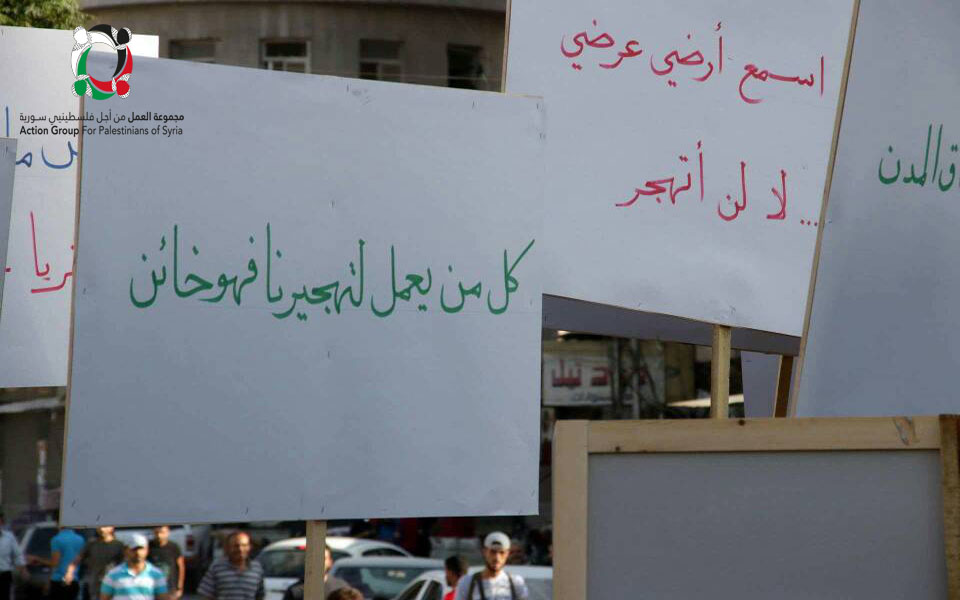 مجموعة العمل من أجل فلسطينيي سورية
Action Group For Palestinians of Syria
كل من يعمل لتهجيرنا فهو خائن
اسمع أرضي عرضي
... لا لن أتهجر
المدن